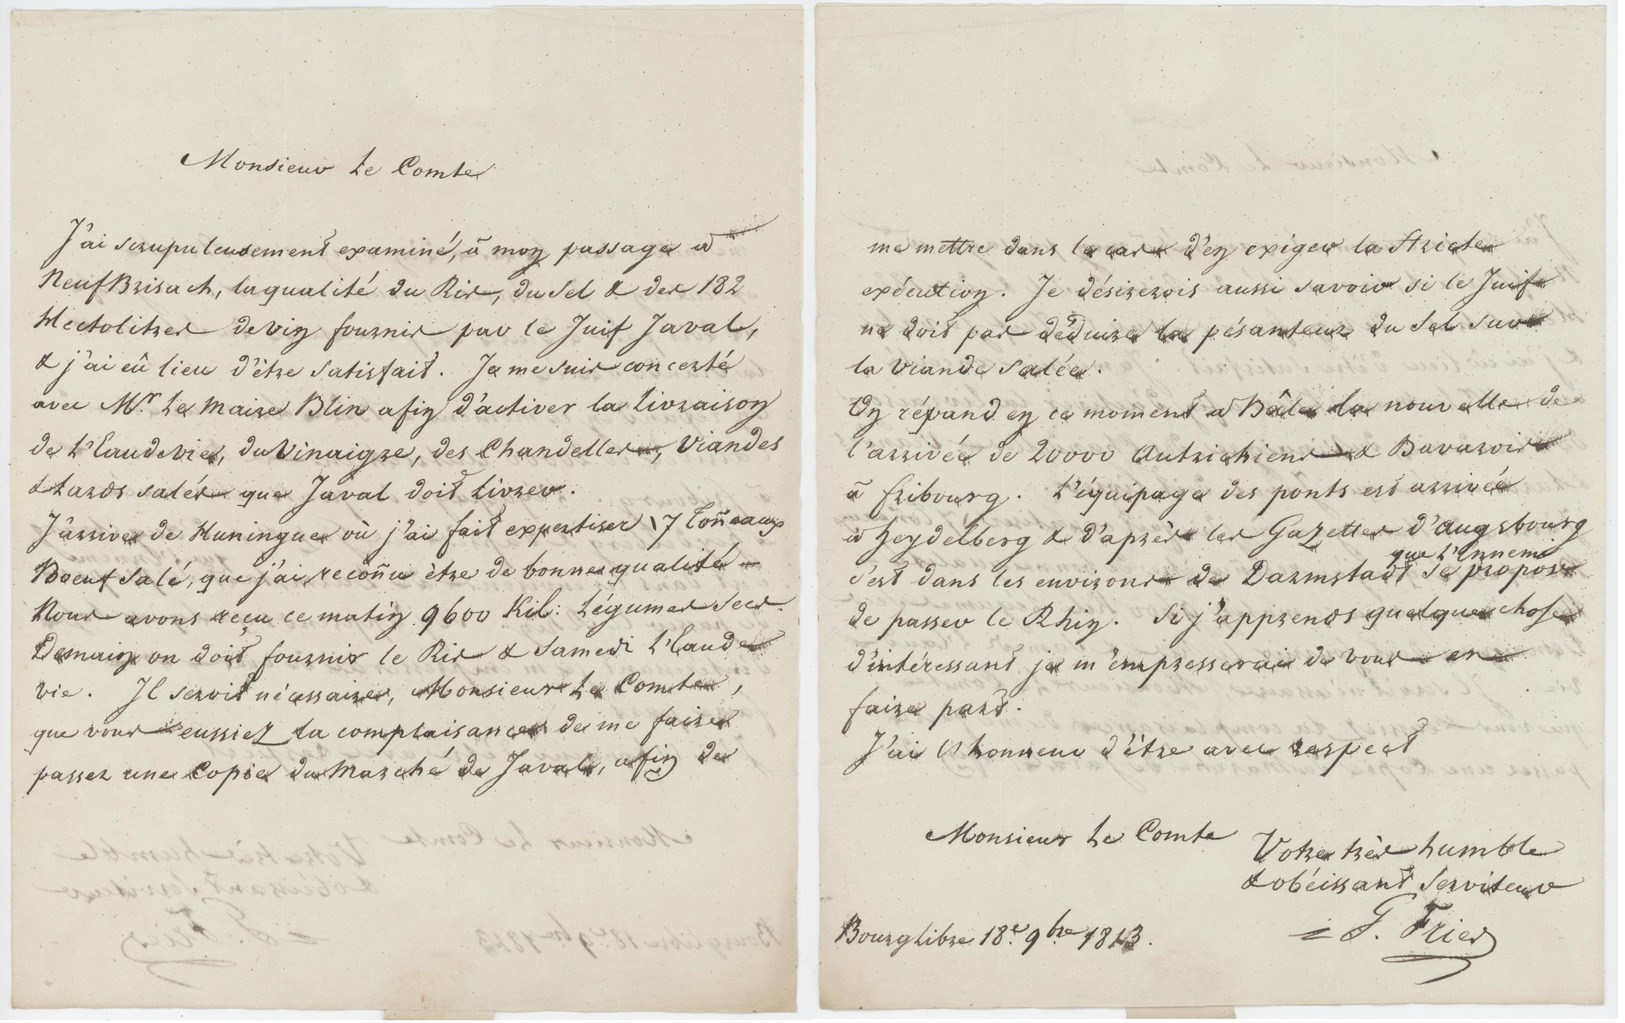 Monsieur Le Comte
J'ai scrupuleusement examiné, à mon passage à
NeufBrisach, la qualité du Ris, du Sel & des 182
Hectolitres de vin fournis par le Juif Javal,
& j'ai eû lieu d'être satisfait. Je me suis concerté
avec Mr. Le Maire Blin afin d'activer la Livraison
de L'Eaudevie, du Vinaigre, des Chandelles, Viandes
& Lards salés que Javal doit Livrer.
J'arrive de Huningue où j'ai fait expertiser 17 Toñeaux
Boeuf Salé, que j'ai recoñu être de bonne qualité
Nous avons reçu ce matin 9600 Kil: Légumes secs.
Demain on doit fournir le Ris & Samedi L'Eaude
vie. Il seroit nécessaire, Monsieur Le Comte,
que vous eussiez la complaisance de me faire
passer une Copie du Marché de Javal, afin de
me mettre dans le cas d'en exiger la Stricte
exécution. Je désirerois aussi savoir si le Juif
ne doit pas déduire la pésanteur du Sel sur
la Viande Salée.
On répand en ce moment à Bâle la nouvelle de
l'arrivée de 20000 Autrichiens & Bavarois
à fribourg. L'équipage des ponts est arrivée
à heydelberg & d'après les Gazettes d'Augsbourg
que L'Ennemi
c'est dans les environs de Darmstadt se propose
de passer le Rhin. Si j'apprends quelque chose
d'intéressant je m'empresserai de vous en
faire part.
J'ai L'honneur d'être avec respect
Monsieur Le Comte
Votre très humble
& obéissant Serviteur
G. Fries
Bourglibre 18.e 9bre 1813.